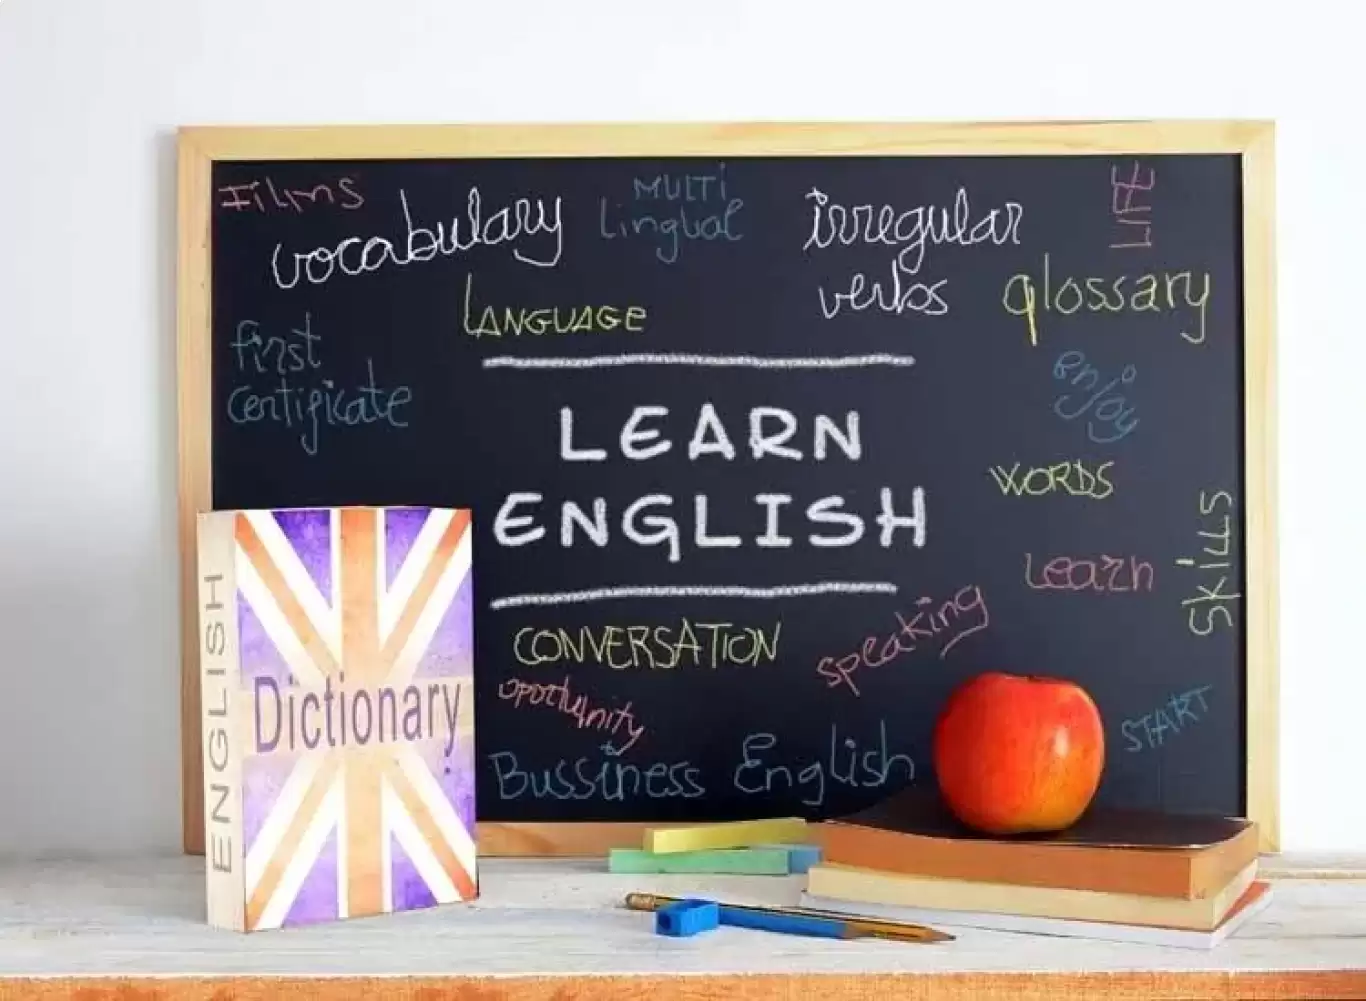 Films
vocabulary
MULTi
lingual
irregular
verbs
LIFE
LANGUAGE
glossary
first
certificate
enjoy
LEARN
ENGLISH
WORDS
SKILLS
Learn
CONVERSATION
speaking
oportunity
START
Bussiness English
ENGLISH
Dictionary